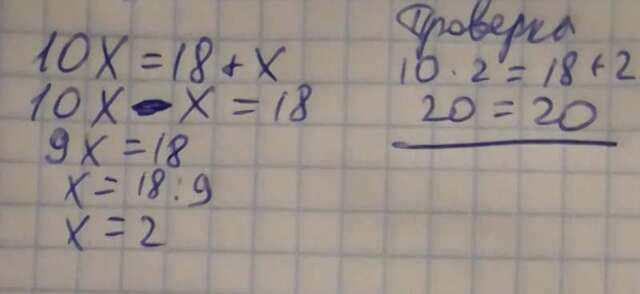 10x = 18 + x
10x - x = 18
9x = 18
x = 18 : 9
x = 2
Проверка
10 · 2 = 18 + 2
20 = 20